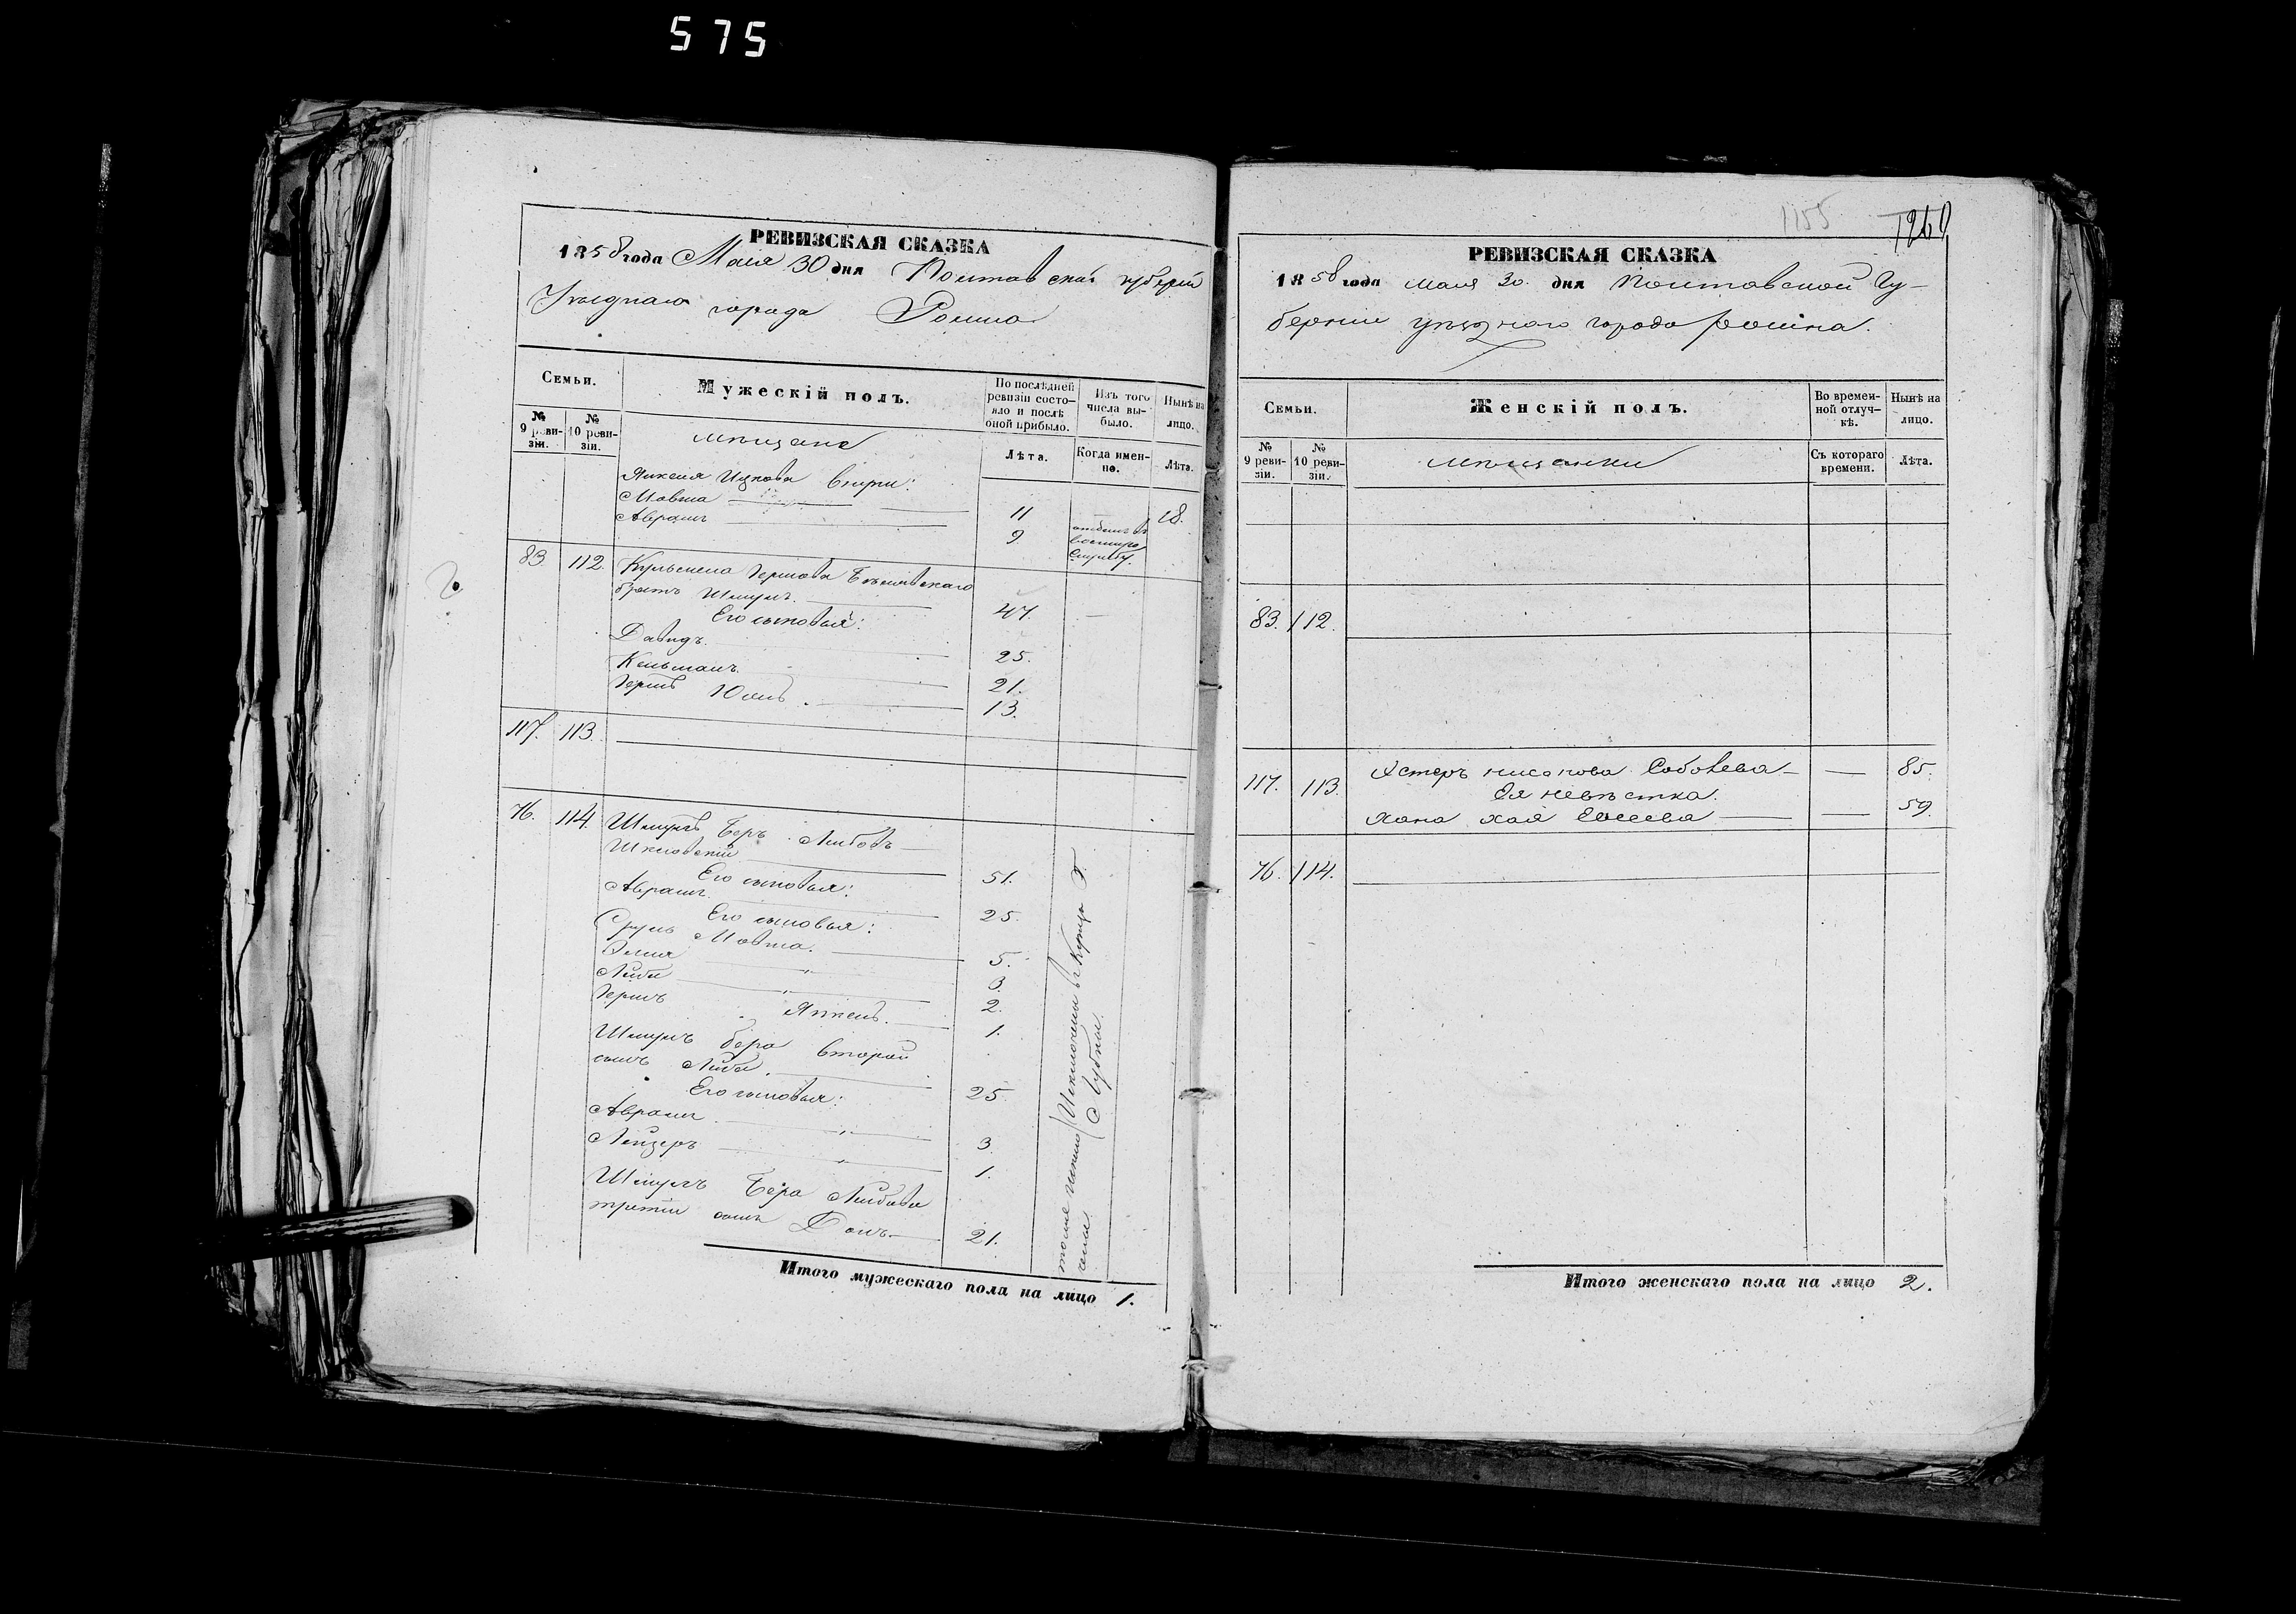 575
РЕВИЗСКАЯ СКАЗКА
1858 года Мая 30 дня Полтавской губерніи
Уѣзднаго города Ромна
Семьи.
Мужескій полъ.
По послѣдней ревизіи состояло и послѣ оной прибыло.
Изъ того числа выбыло.
Нынѣ на лицо.
№ 9 ревизіи.
№ 10 ревизіи.
мѣщане
Лѣта.
Когда именно.
Лѣта.
Янкеля Ицкова внуки:
Мовша 11 — 18.
Аврамъ 9. военную службу.
83 112. Гершова
братъ Шмуль. 47. —
Его сыновья:
Давидъ. 25.
Кельманъ. 21.
Гершъ Юдль. 13.
117. 113.
76. 114. Шмуль Беръ Лейбовъ
Шкловскій 51.
Его сыновья:
Аврамъ. 25.
Его сыновья:
Сруль Мовша. 5.
3.
Лейба 2.
Гершъ Янкель. 1.
Шмуля Бера второй
сынъ Лейба. 25.
Его сыновья:
Аврамъ 3.
Лейзеръ 1.
Шмуля Бера Лейбова
третій сынъ Донъ 21.
Итого мужескаго пола на лицо 1.
1155
1260
РЕВИЗСКАЯ СКАЗКА
1858 года мая 30. дня Полтавской Гу-
берніи уѣзднаго города Ромна.
Семьи.
Женскій полъ.
Во временной отлучкѣ.
Нынѣ на лицо.
№ 9 ревизіи.
№ 10 ревизіи.
мѣщанки
Съ котораго времени.
Лѣта.
83. 112.
117. 113. Естеръ Соболева — — 85.
Ея невѣстка.
Хана Хая Евсеева — — 59.
76. 114.
Итого женскаго пола на лицо 2.